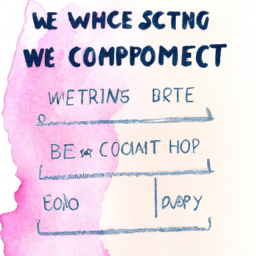 WE WHCE SCTNG
WE COMPPOMECT
WETRINS BRTE
BE COCIMT HOP
EOIO DABPY